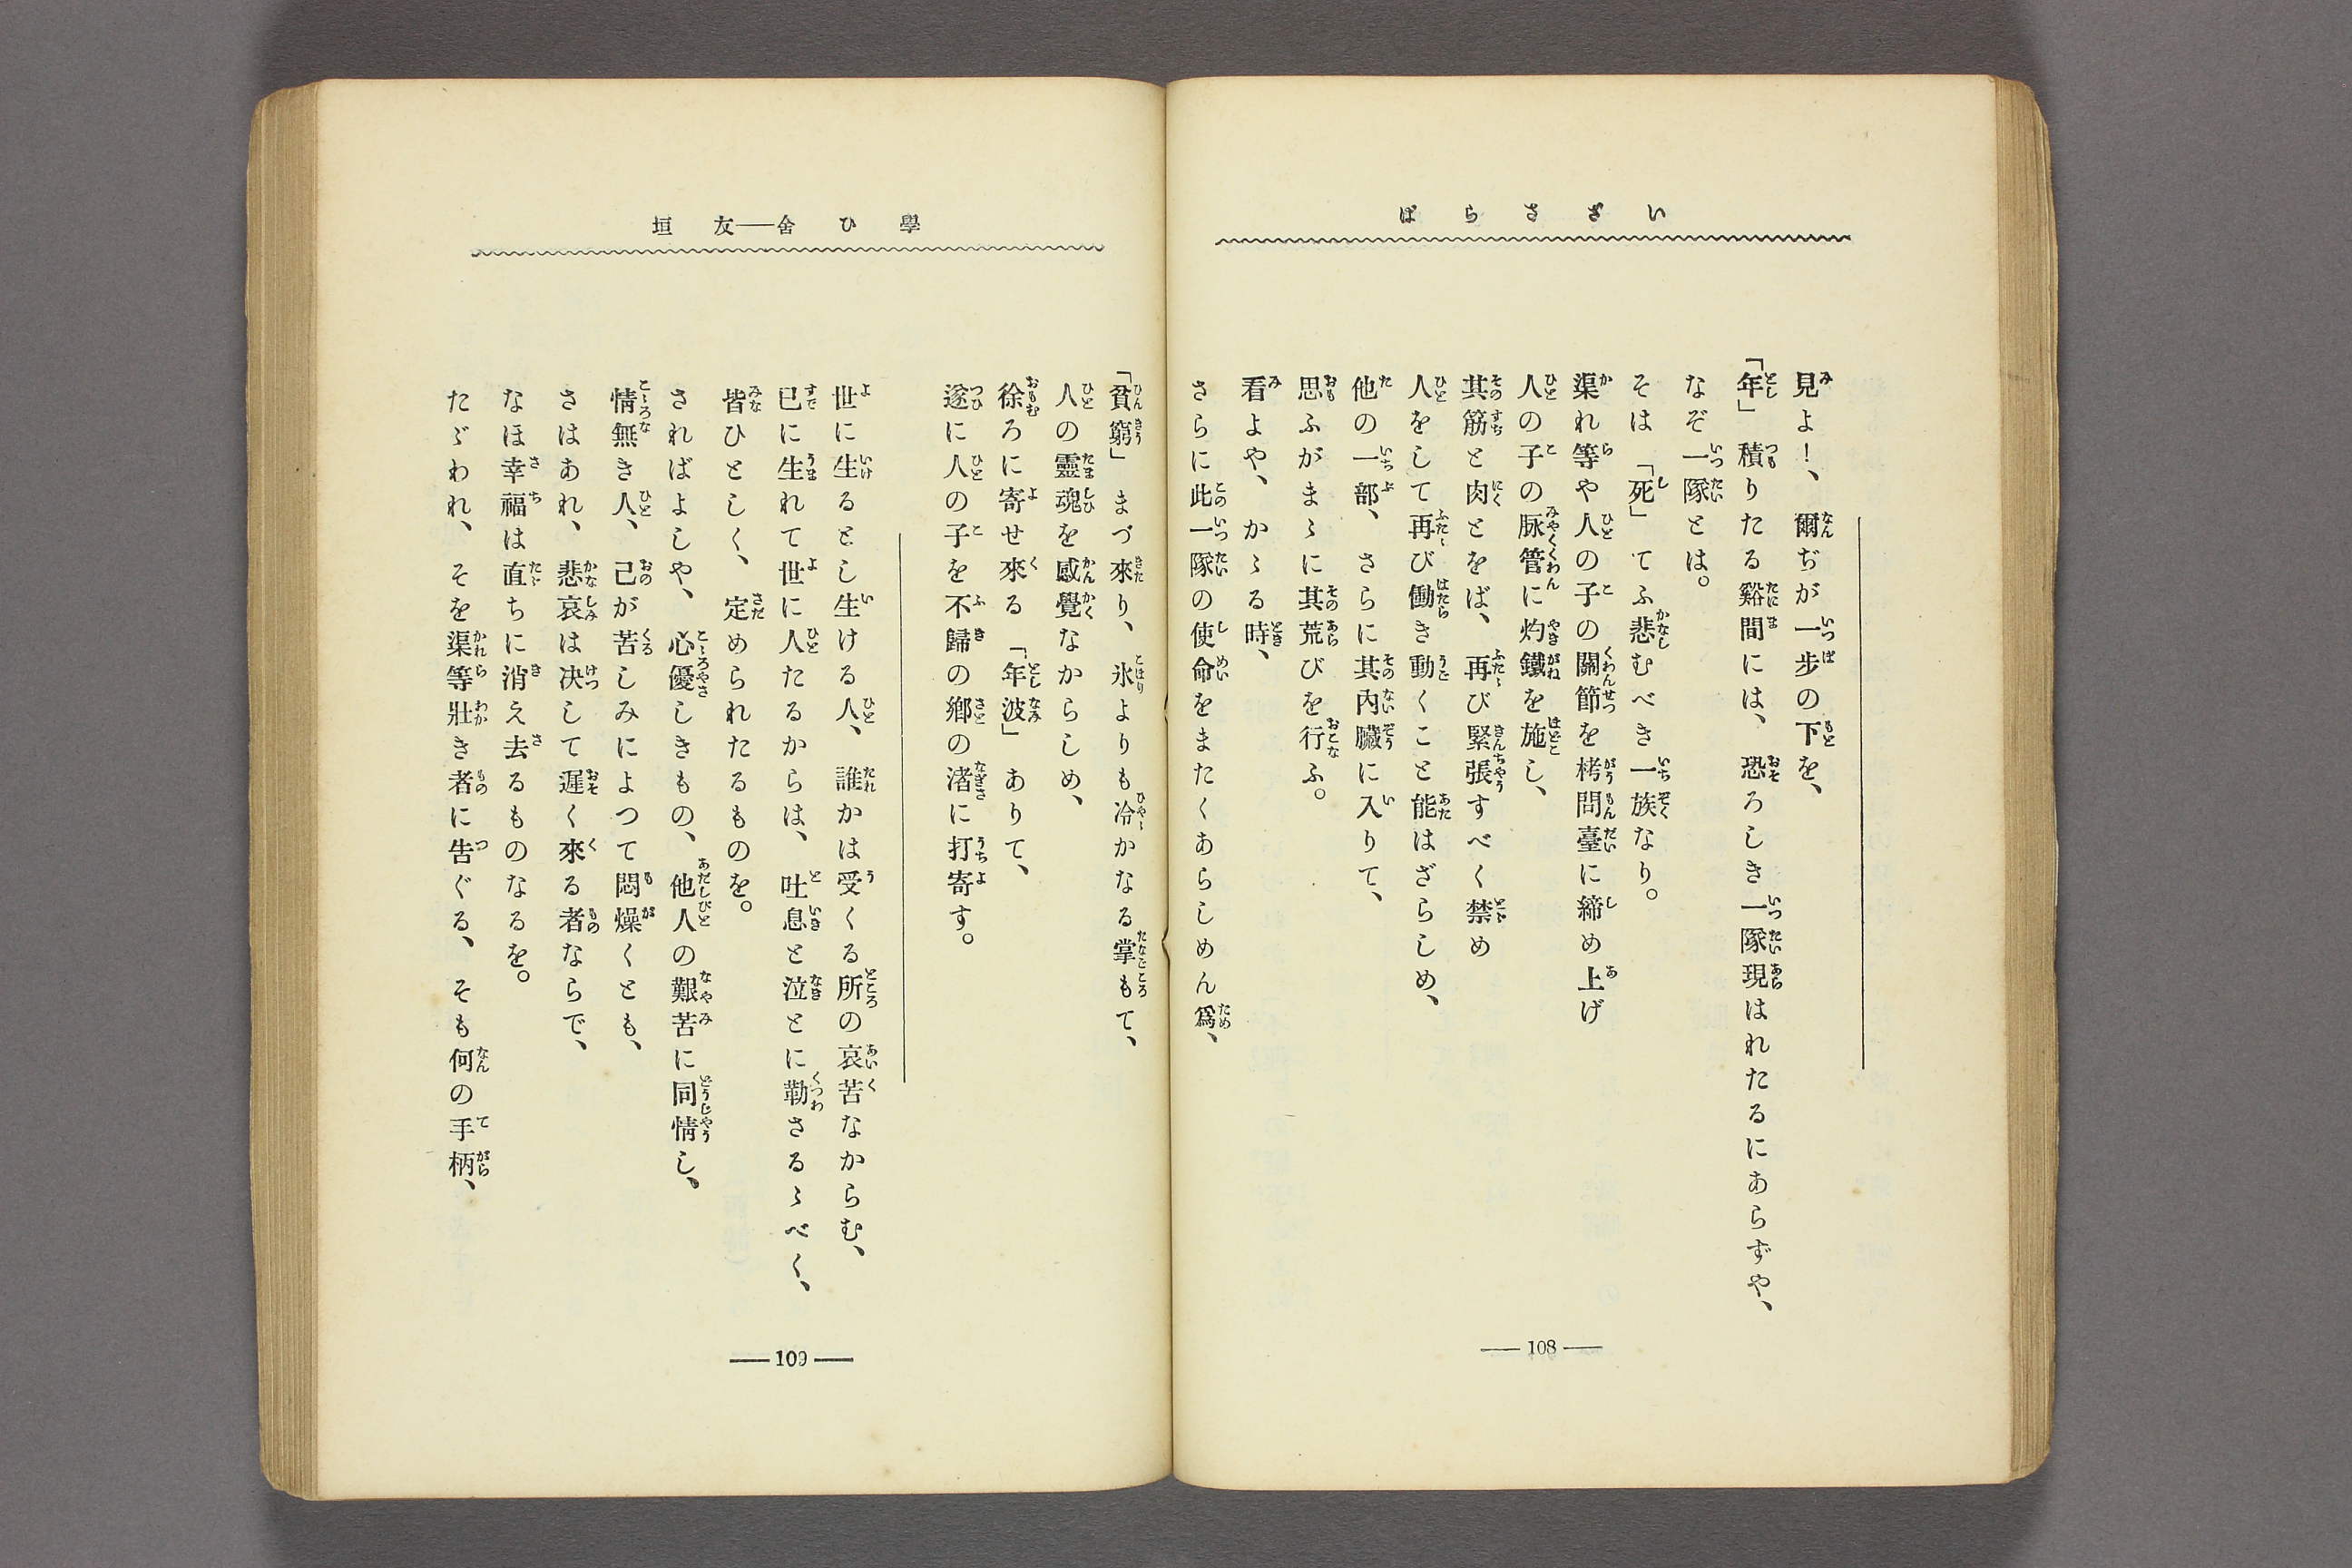 いざさらば
見よ！、爾ぢが一步の下を、
「年」積りたる谿間には、恐ろしき一隊現はれたるにあらずや、
なぞ一隊とは。
そは「死」てふ悲むべき一族なり。
渠れ等や人の子の關節を栲問臺に締め上げ
人の子の脉管に灼鐵を施し、
其筋と肉とをば、再び緊張すべく禁め
人をして再び働き動くこと能はざらしめ、
他の一部、さらに其內臟に入りて、
思ふがまゝに其荒びを行ふ。
看よや、かゝる時、
さらに此一隊の使命をまたくあらしめん爲、
108
學ひ舍—友垣
「貧窮」まづ來り、氷よりも冷かなる掌もて、
人の靈魂を感覺なからしめ、
徐ろに寄せ來る「年波」ありて、
遂に人の子を不歸の鄕の渚に打寄す。
世に生るとし生ける人、誰かは受くる所の哀苦なからむ、
已に生れて世に人たるからは、吐息と泣とに勒さるゝべく、
皆ひとしく、定められたるものを。
さればよしや、心優しきもの、他人の艱苦に同情し、
情無き人、己が苦しみによつて悶燥くとも、
さはあれ、悲哀は决して遲く來る者ならで、
なほ幸福は直ちに消え去るものなるを。
たゞわれ、そを渠等壯き者に吿ぐる、そも何の手柄、
109